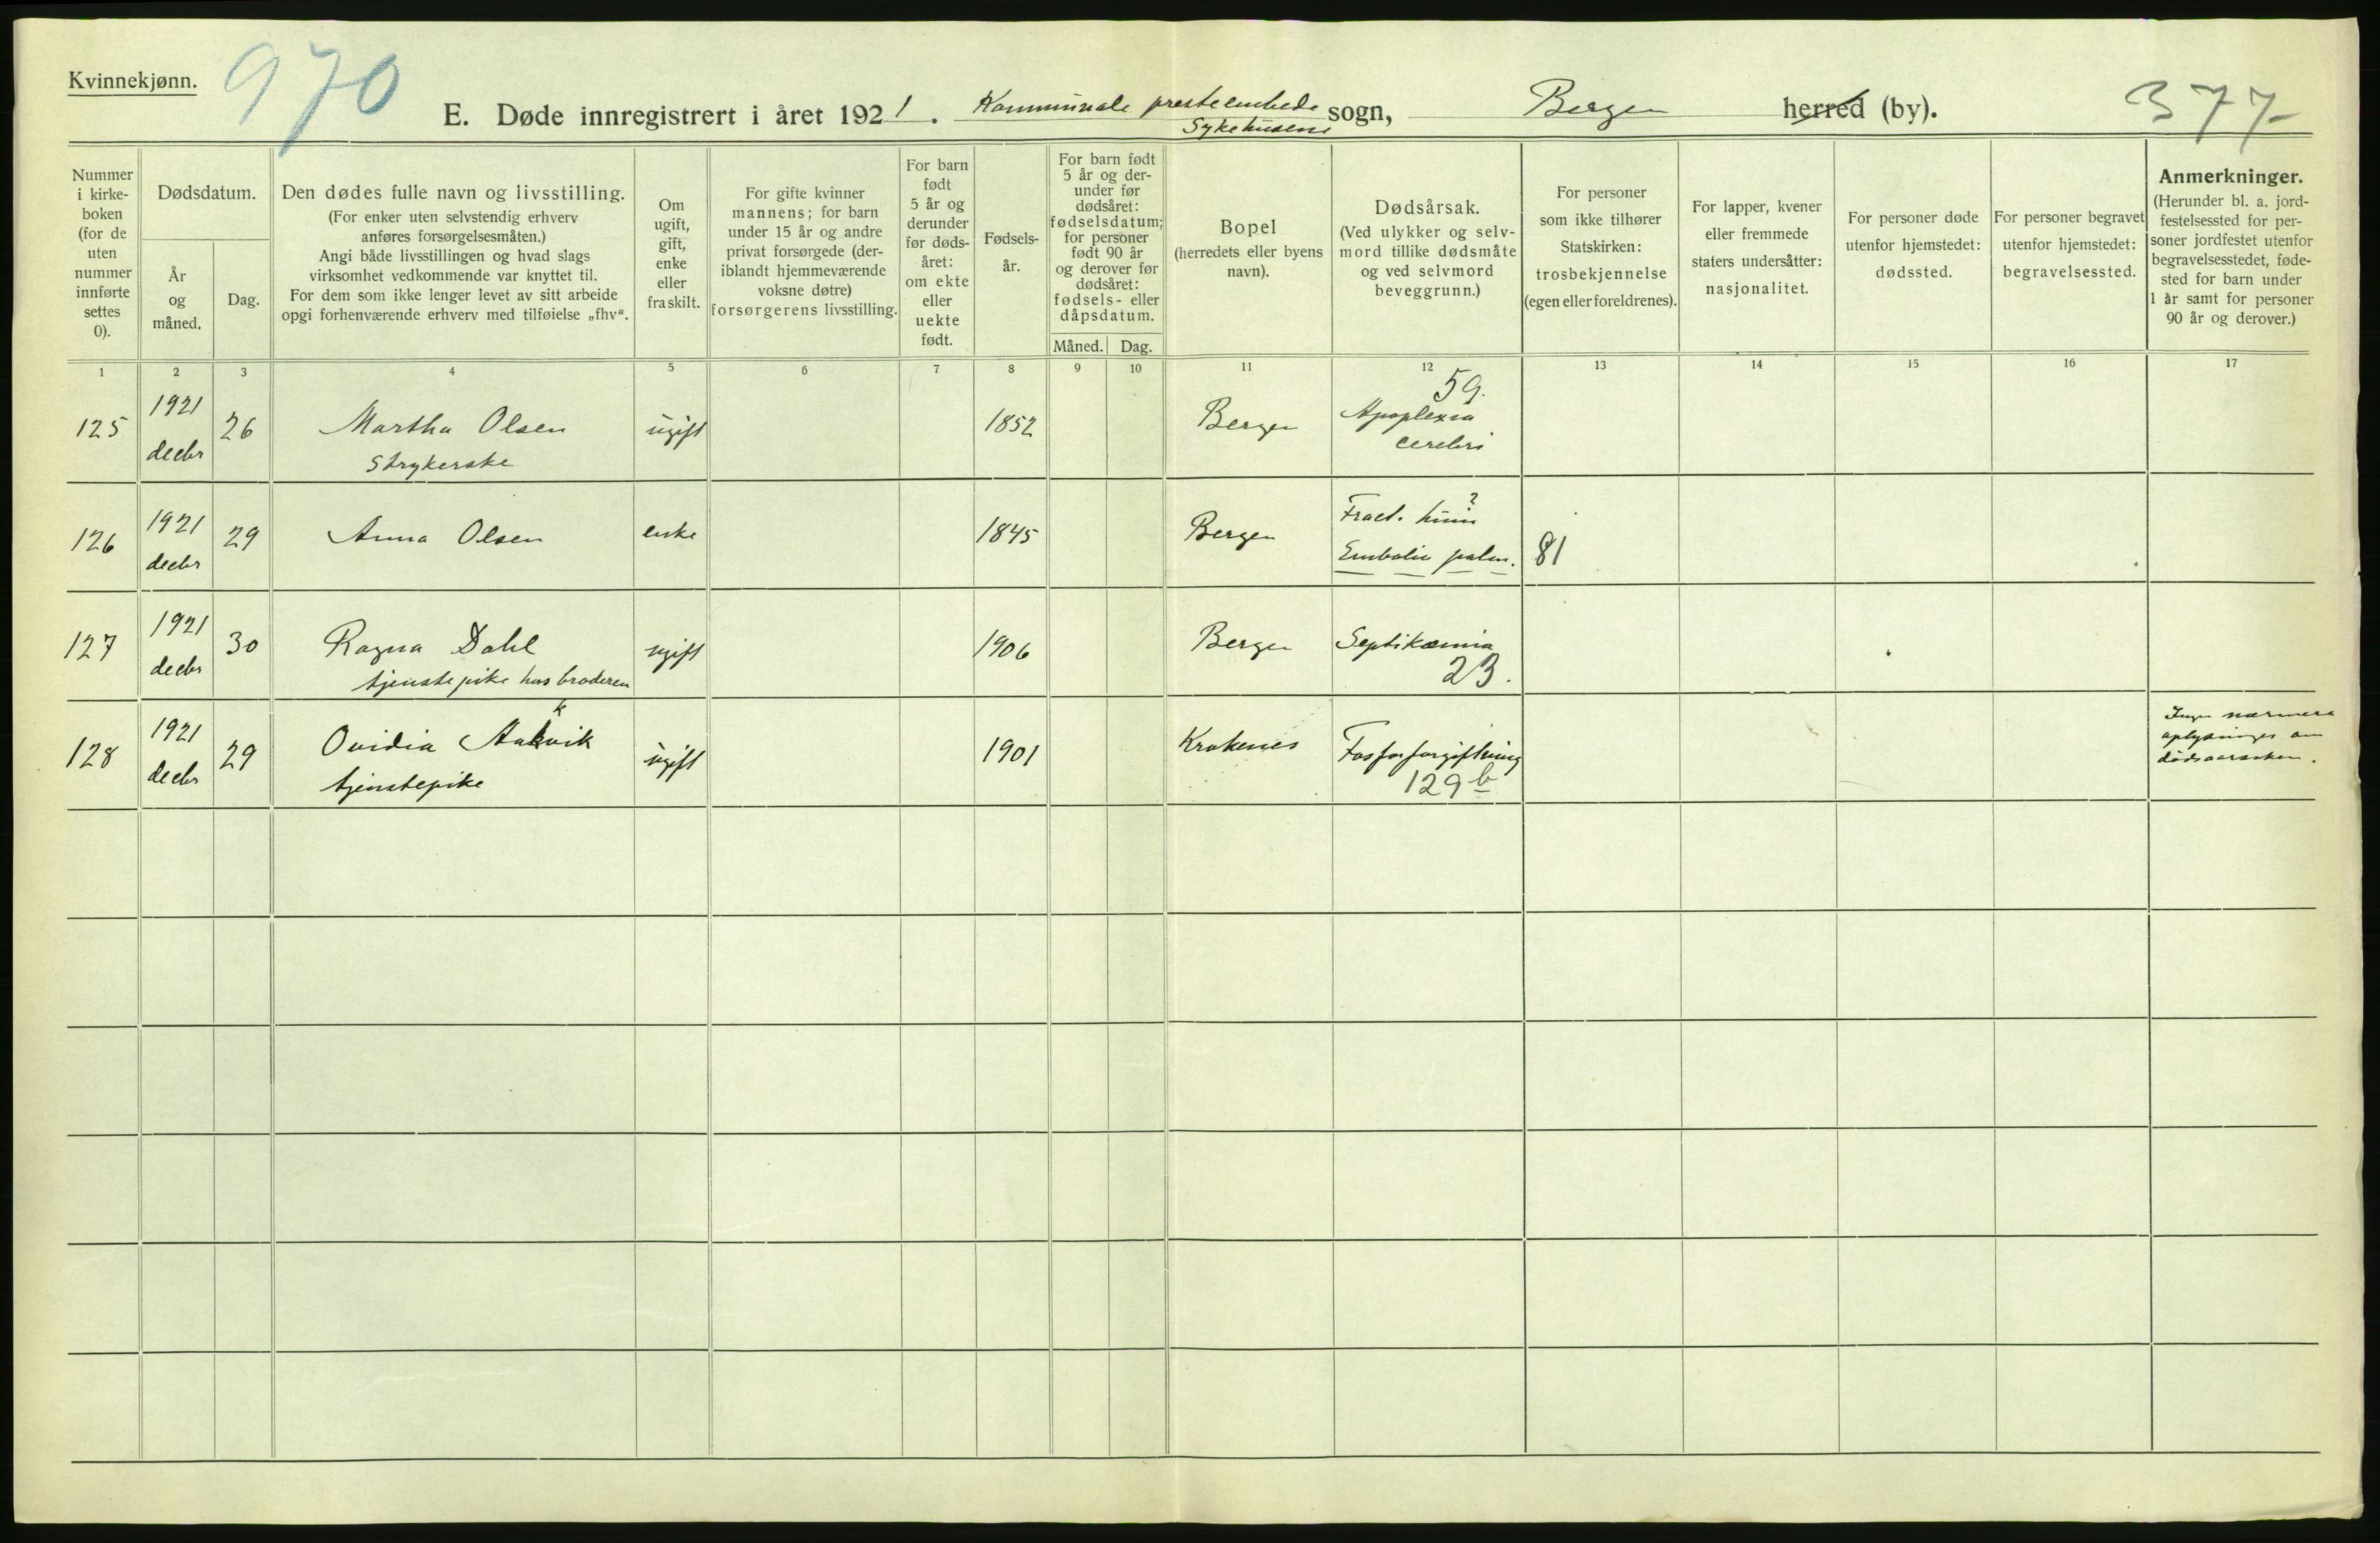 Kvinnekjønn.
970
E. Døde innregistrert i året 1921. Kommunale presteembede sogn, Bergen herred (by).
Sykehusene
377-
Nummer
i kirke-
boken
(for de
uten
nummer
innførte
settes
0).
Dødsdatum.
År
og
måned.
Dag.
Den dødes fulle navn og livsstilling.
(For enker uten selvstendig erhverv
anføres forsørgelsesmåten.)
Angi både livsstillingen og hvad slags
virksomhet vedkommende var knyttet til.
For dem som ikke lenger levet av sitt arbeide
opgi forhenværende erhverv med tilføielse „fhv“.
Om
ugift,
gift,
enke
eller
fraskilt.
For gifte kvinner
mannens; for barn
under 15 år og andre
privat forsørgede (der-
iblandt hjemmeværende
voksne døtre)
forsørgerens livsstilling.
For barn
født
5 år og
derunder
før døds-
året:
om ekte
eller
uekte
født.
Fødsels-
år.
For barn født
5 år og der-
under før
dødsåret:
fødselsdatum;
for personer
født 90 år
og derover før
dødsåret:
fødsels- eller
dåpsdatum.
Måned.
Dag.
Bopel
(herredets eller byens
navn).
Dødsårsak.
(Ved ulykker og selv-
mord tillike dødsmåte
og ved selvmord
beveggrunn.)
For personer
som ikke tilhører
Statskirken:
trosbekjennelse
(egen eller foreldrenes).
For lapper, kvener
eller fremmede
staters undersåtter:
nasjonalitet.
For personer døde
utenfor hjemstedet:
dødssted.
For personer begravet
utenfor hjemstedet:
begravelsessted.
Anmerkninger.
(Herunder bl. a. jord-
festelsessted for per-
soner jordfestet utenfor
begravelsesstedet, føde-
sted for barn under
1 år samt for personer
90 år og derover.)
1 2 3 4 5 6 7 8 9 10 11 12 13 14 15 16 17
125
1921
decbr
26
Martha Olsen
Strykerske
ugift
1852
Bergen
59.
Apoplexia
cerebri
126
1921
decbr
29
Anna Olsen
enke
1845
Bergen
?
Fract.
Embolie pulm.
81
127
1921
decbr
30
Ragna Dahl
tjenstepike hos broderen
ugift
1906
Bergen
Septikæmia
23.
128
1921
decbr
29
k
Ovidia Aakvik
tjenstepike
ugift
1901
Krokenes
Fosforforgiftning
129 b
Ingen nærmere
oplysninger om
dödsaarsaken.